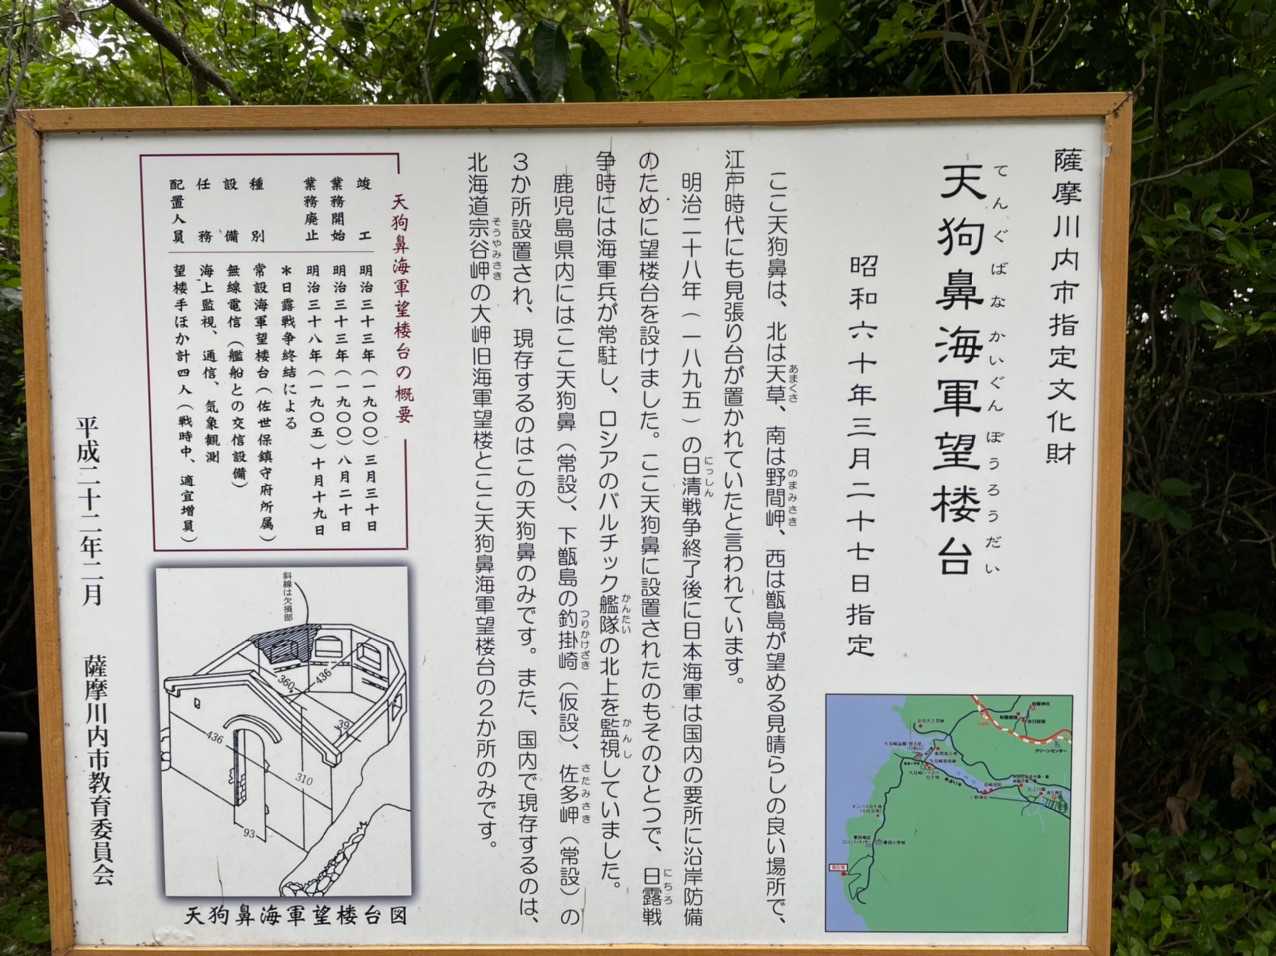 薩摩川内市指定文化財
てんぐばなかいぐんぼうろうだい
天狗鼻海軍望楼台
昭和六十年三月二十七日指定
ここ天狗鼻は、北は天草、南は野間岬、西は甑島が望める見晴らしの良い場所で、
あまくさ
のまみさき
江戸時代にも見張り台が置かれていたと言われています。
明治二十八年(一八九五)の日清戦争終了後に日本海軍は国内の要所に沿岸防備
にっしん
のために望楼台を設けました。ここ天狗鼻に設置されたのもそのひとつで、日露戦
にちろ
争時には海軍兵が常駐し、ロシアのバルチック艦隊の北上を監視していました。
かんたい
かんし
鹿児島県内にはここ天狗鼻(常設)、下甑島の釣掛崎(仮設)、佐多岬(常設)の
つりかけざき
さたみさき
3か所設置され、現存するのはこの天狗鼻のみです。また、国内で現存するのは、
北海道宗谷岬の大岬旧海軍望楼とここ天狗鼻海軍望楼台の2か所のみです。
そうやみさき
天狗鼻海軍望楼台の概要
竣工 明治三十三年(一九〇〇)三月三十日
業務開始 明治三十三年(一九〇〇)八月二十日
業務廃止 明治三十八年(一九〇五)十月十九日
*日露戦争終結による
種別 常設海軍望楼台(佐世保鎮守府所属)
設備 無線電信(艦船との交信設備)
任務 海上監視、通信、気象観測
配置人員 望楼手ほか計四人(戦時中、適宜増員)
斜線は欠損部
436
360
436
397
310
93
天狗鼻海軍望楼台図
平成二十二年二月 薩摩川内市教育委員会